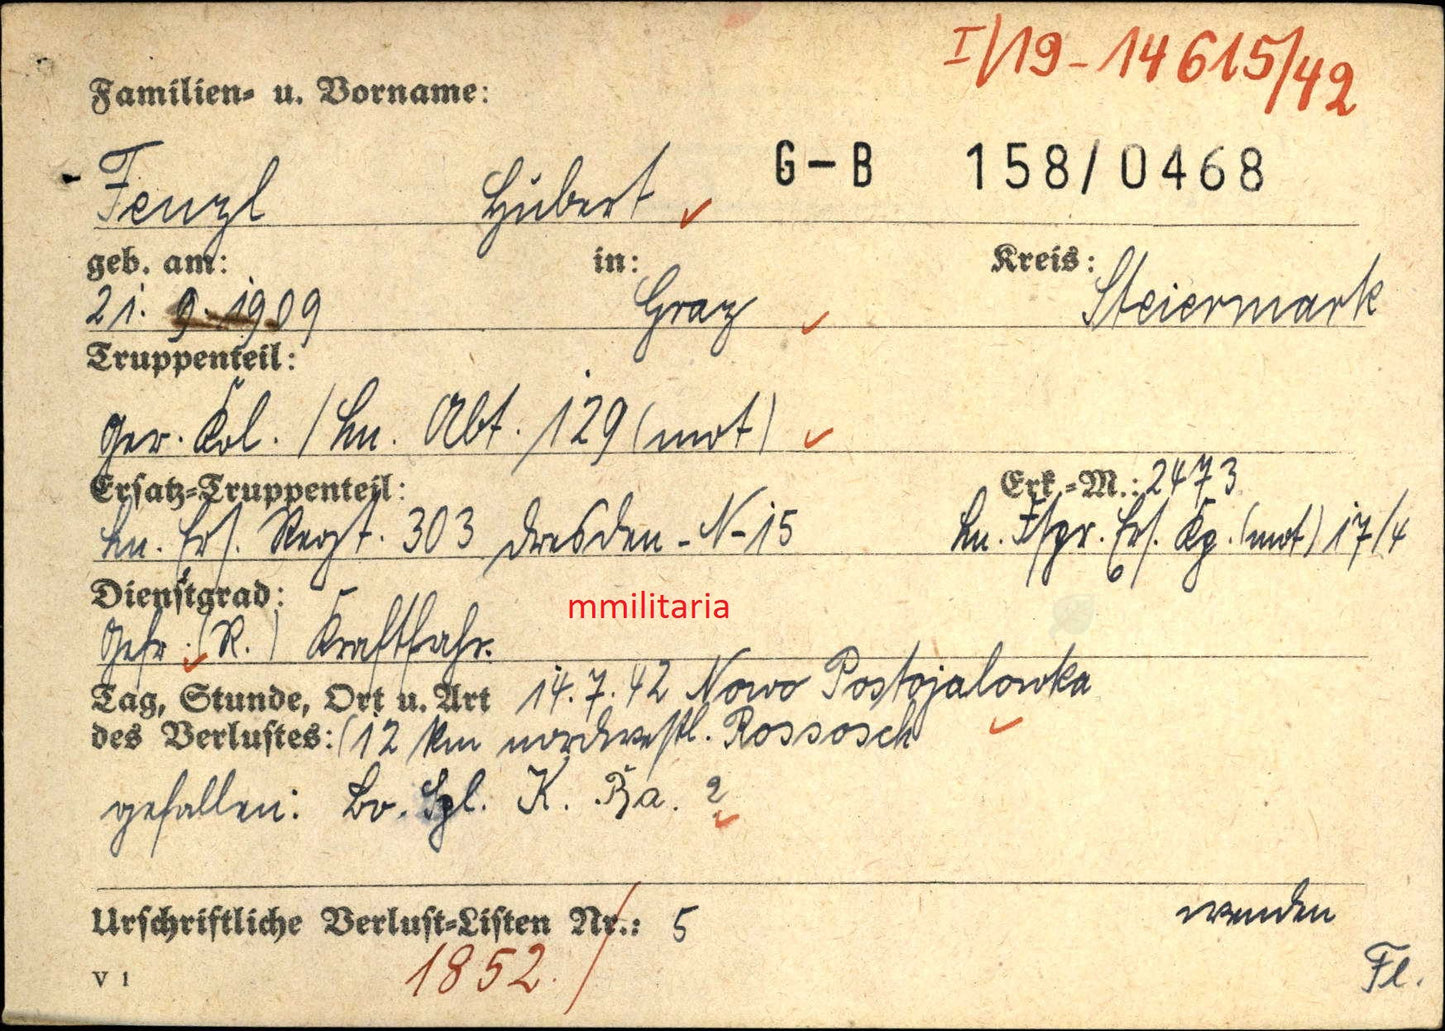 I/19-14615/42
Familien- u. Vorname:
G-B 158/0468
Fenzl Hubert
geb. am: in: Kreis:
21. 9. 1909 Graz Steiermark
Truppenteil:
Ger. Kol. / Ln. Abt. 129 (mot)
Ersatz-Truppenteil: Erk.-M.: 2473
Ln. Ers. Regt. 303 Dresden - N - 15 Ln. Ers. Kp. (mot) 17/4
Dienstgrad:
Gefr. (R.) Kraftfahr.
mmilitaria
Tag, Stunde, Ort u. Art 14.7.42 Nowo Postojalowka
des Verlustes: (12 km nordwestl. Rossosch
gefallen: Bo. Spl. K. Ba. 2
Urschriftliche Verlust-Listen Nr.: 5 wenden
1852. Fl.
V 1